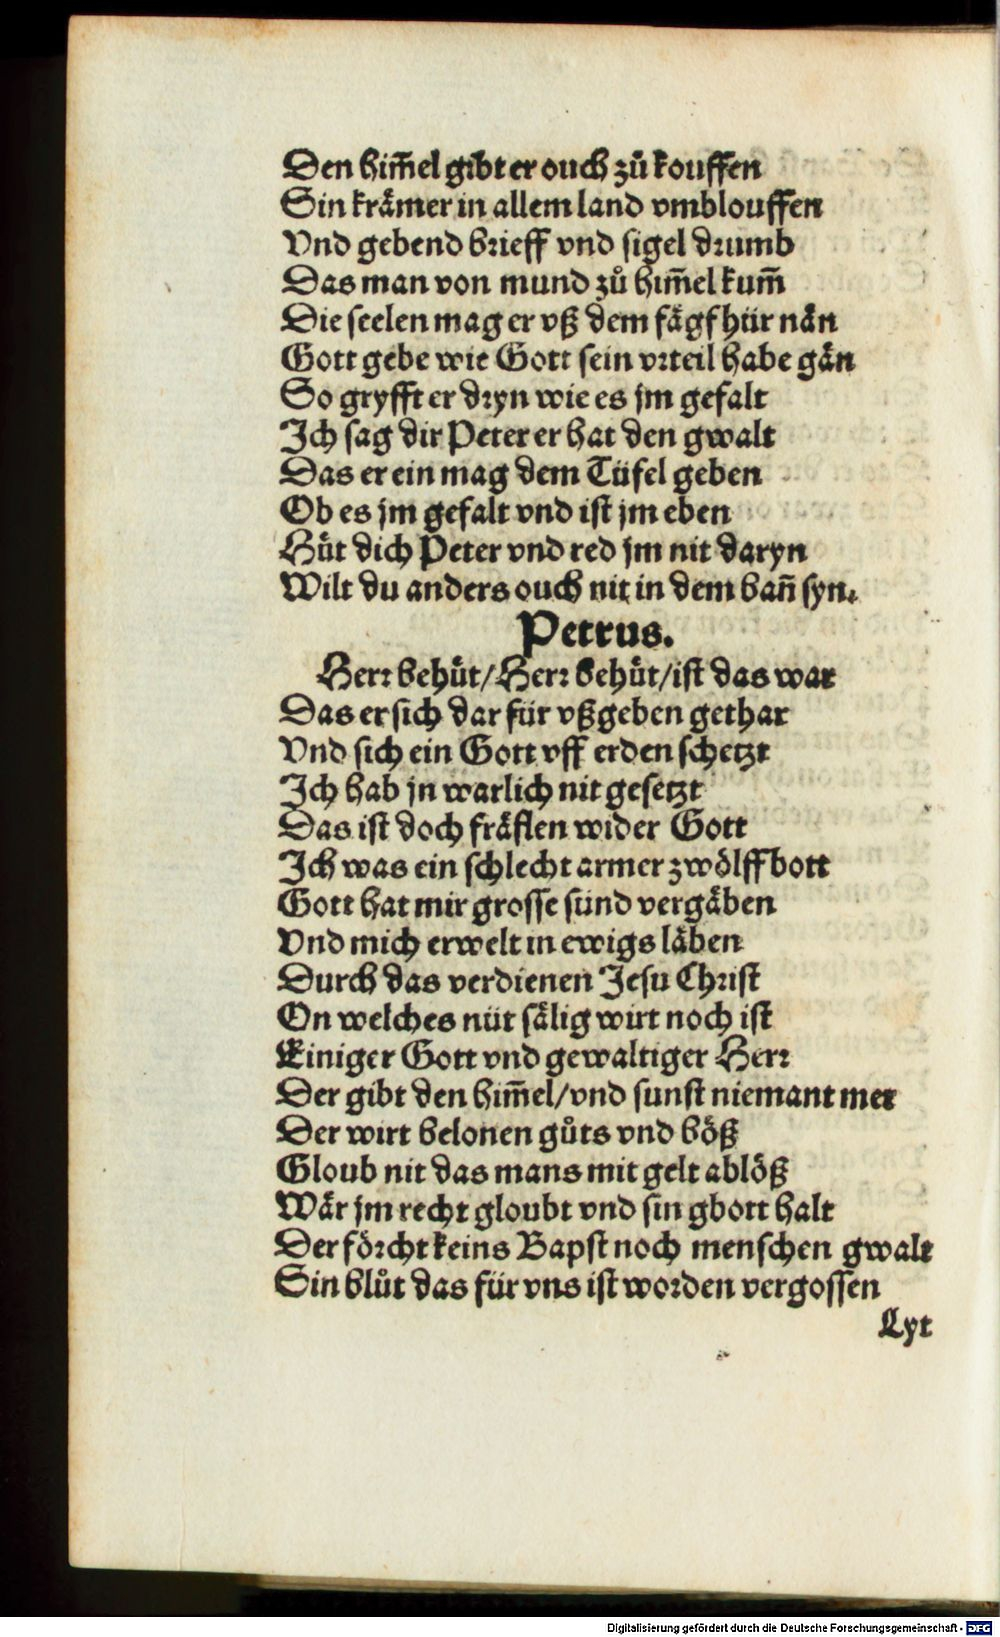 Den him̃el gibt er ouch zů kouffen
Sin krämer in allem land vmblouffen
Vnd gebend brieff vnd sigel drumb
Das man von mund zů him̃el kum̃
Die seelen mag er vß dem fägfhür nän
Gott gebe wie Gott sein vrteil habe gän
So gryfft er dryn wie es jm gefalt
Ich sag dir Peter er hat den gwalt
Das er ein mag dem Tüfel geben
Ob es jm gefalt vnd ist jm eben
Hüt dich Peter vnd red jm nit daryn
Wilt du anders ouch nit in dem bañ syn.
Petrus.
Herr behüt/Herr behüt/ist das war
Das er sich dar für vßgeben gethar
Vnd sich ein Gott vff erden schetzt
Ich hab jn warlich nit gesetzt
Das ist doch fräflen wider Gott
Ich was ein schlecht armer zwölffbott
Gott hat mir grosse sünd vergäben
Vnd mich erwelt in ewigs läben
Durch das verdienen Jesu Christ
On welches nüt sälig wirt noch ist
Einiger Gott vnd gewaltiger Herr
Der gibt den him̃el/vnd sunst niemant mer
Der wirt belonen gůts vnd böß
Gloub nit das mans mit gelt ablöß
Wär jm recht gloubt vnd sin gbott halt
Der förcht keins Bapst noch menschen gwalt
Sin blůt das für vns ist worden vergossen
Lyt
Digitalisierung gefördert durch die Deutsche Forschungsgemeinschaft - DFG